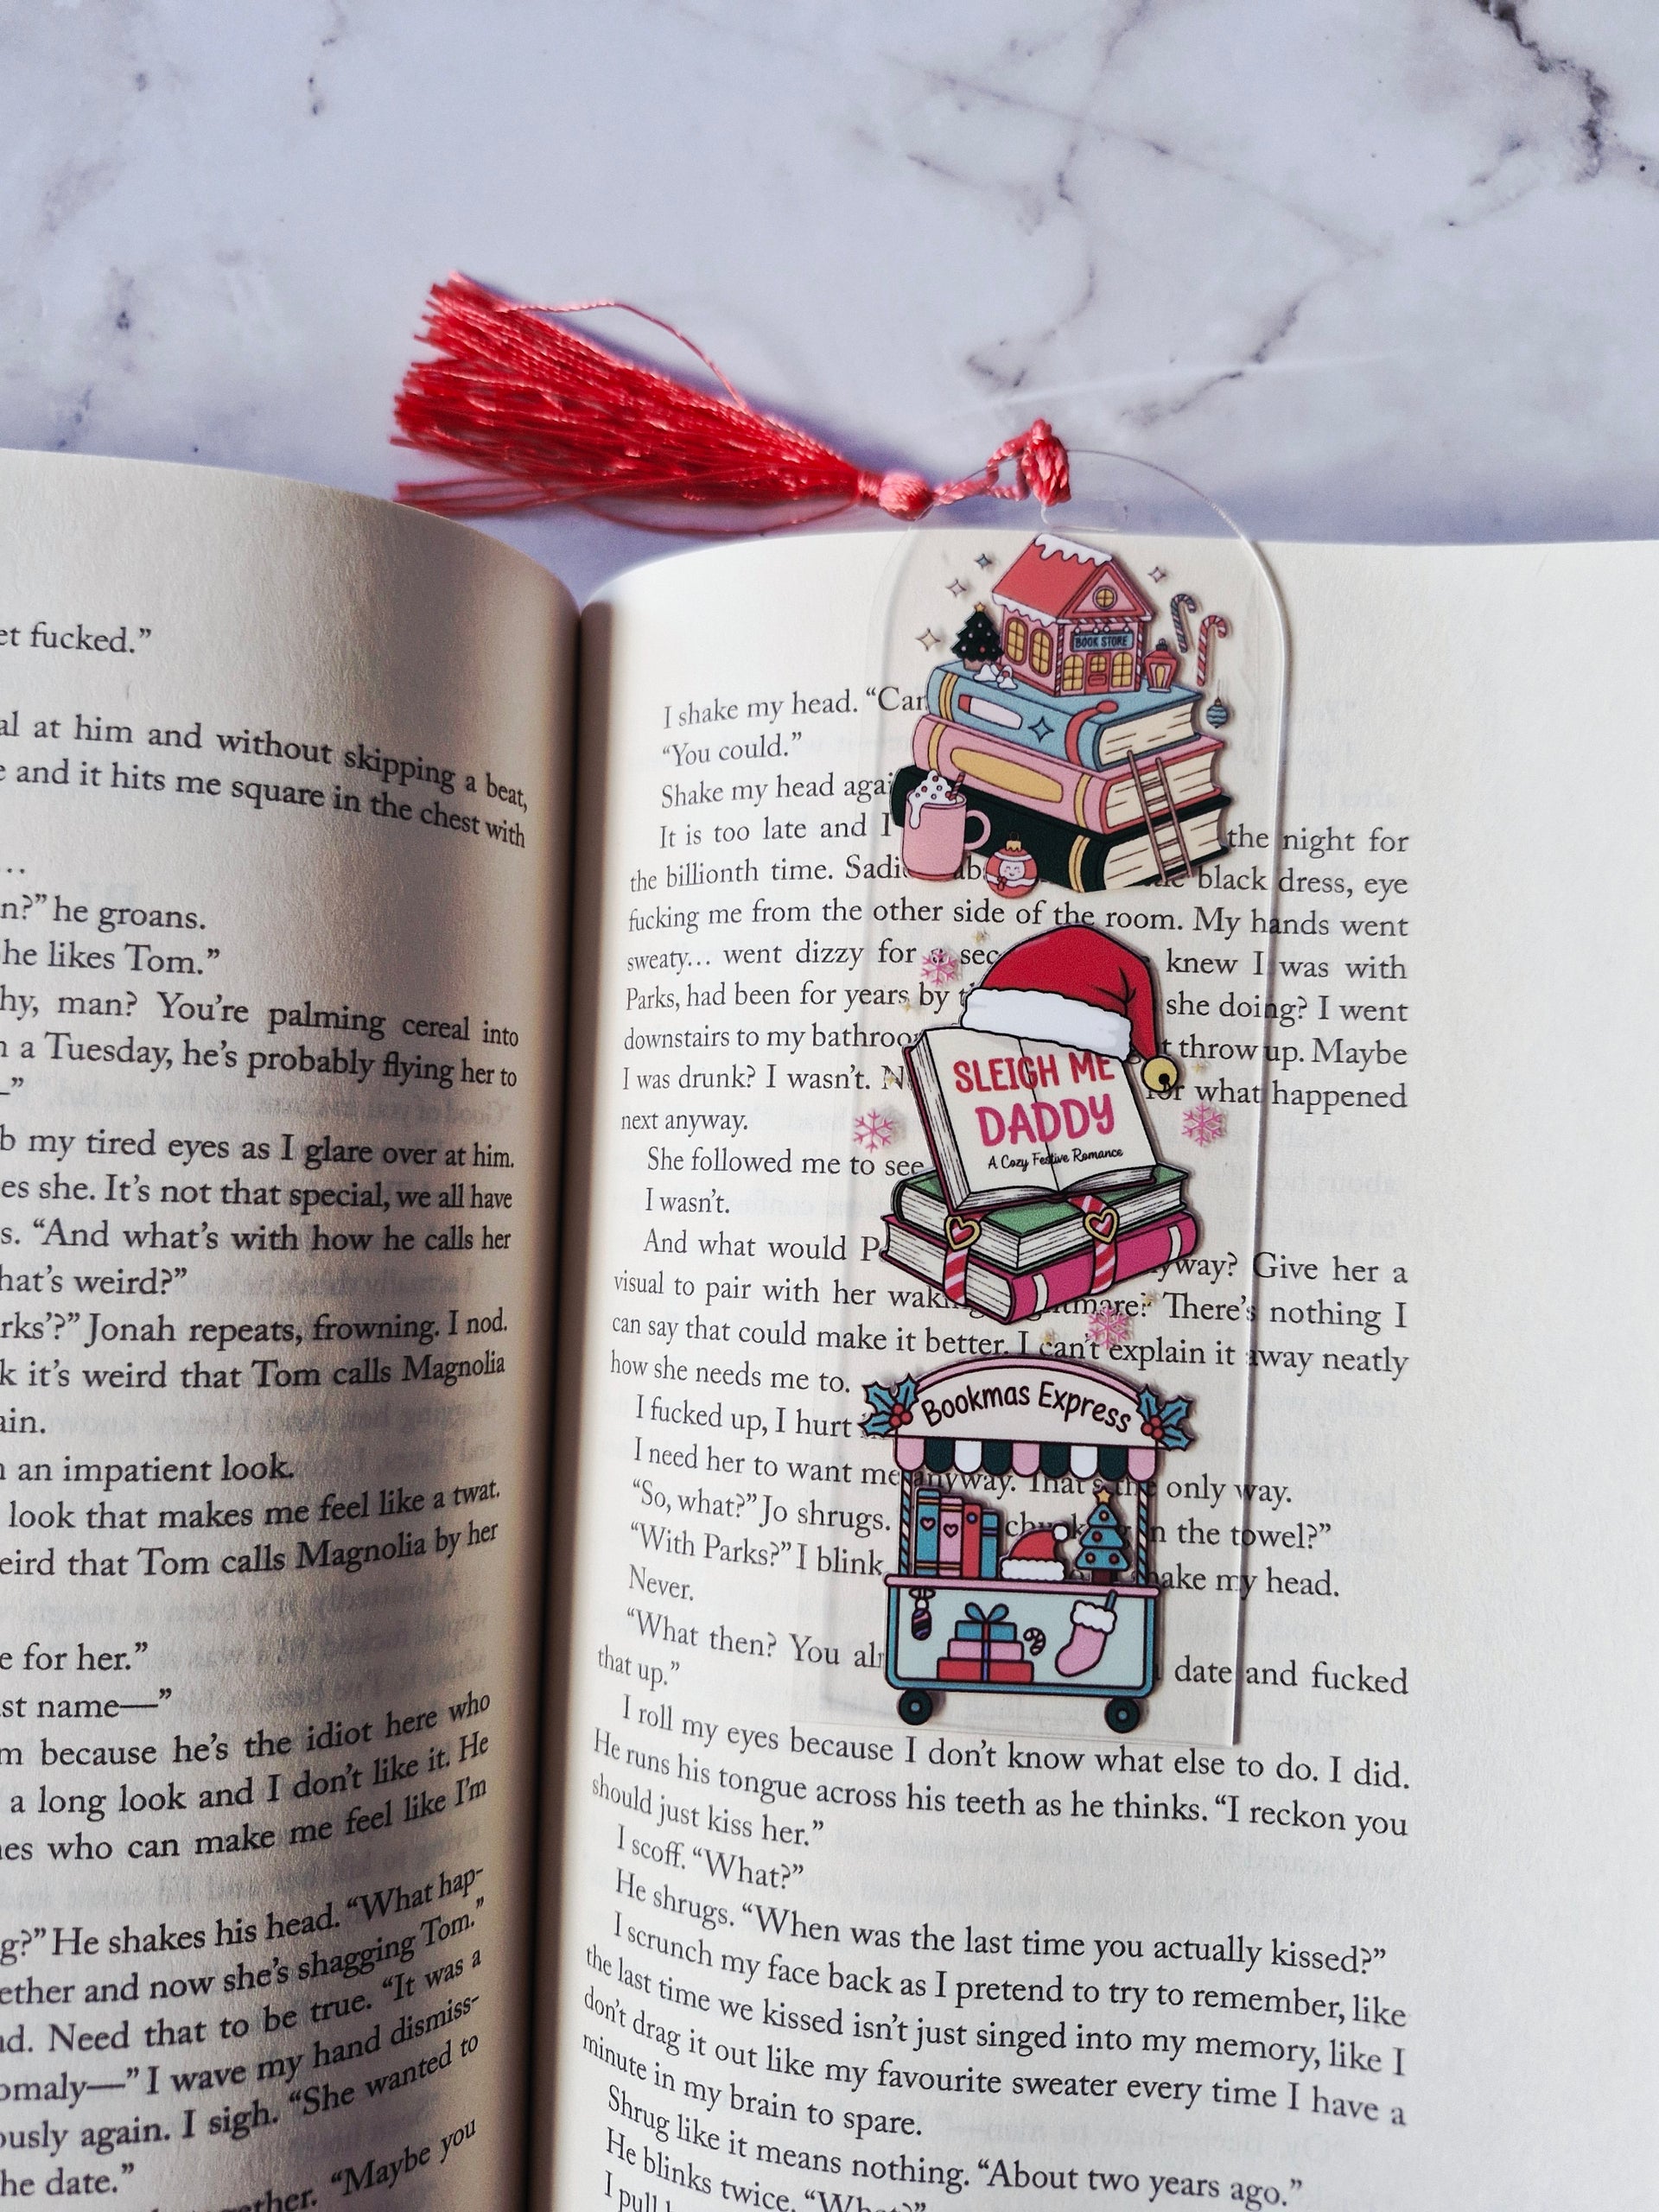 et fucked.”
al at him and without skipping a beat,
e and it hits me square in the chest with
n?” he groans.
he likes Tom.”
hy, man? You’re palming cereal into
n a Tuesday, he’s probably flying her to
—”
b my tired eyes as I glare over at him.
es she. It’s not that special, we all have
s. “And what’s with how he calls her
hat’s weird?”
rks’?” Jonah repeats, frowning. I nod.
k it’s weird that Tom calls Magnolia
ain.
n an impatient look.
look that makes me feel like a twat.
eird that Tom calls Magnolia by her
e for her.”
st name—”
m because he’s the idiot here who
a long look and I don’t like it. He
nes who can make me feel like I’m
g?” He shakes his head. “What hap-
ether and now she’s shagging Tom.”
nd. Need that to be true. “It was a
omaly—” I wave my hand dismiss-
ously again. I sigh. “She wanted to
he date.”
ether. “Maybe you
I shake my head. “Car
“You could.”
Shake my head agai
It is too late and I the night for
the billionth time. Sadi black dress, eye
fucking me from the other side of the room. My hands went
sweaty… went dizzy for a sec knew I was with
Parks, had been for years by she doing? I went
downstairs to my bathroo throw up. Maybe
I was drunk? I wasn’t. for what happened
next anyway.
She followed me to see
I wasn’t.
And what would P yway? Give her a
visual to pair with her waking There’s nothing I
can say that could make it better. I can’t explain it away neatly
how she needs me to.
I fucked up, I hurt
I need her to want me anyway. That’s the only way.
“So, what?” Jo shrugs. n the towel?”
“With Parks?” I blink ake my head.
Never.
“What then? You alr date and fucked
that up.”
I roll my eyes because I don’t know what else to do. I did.
He runs his tongue across his teeth as he thinks. “I reckon you
should just kiss her.”
I scoff. “What?”
He shrugs. “When was the last time you actually kissed?”
I scrunch my face back as I pretend to try to remember, like
the last time we kissed isn’t just singed into my memory, like I
don’t drag it out like my favourite sweater every time I have a
minute in my brain to spare.
Shrug like it means nothing. “About two years ago.”
He blinks twice. “What?”
I pull
BOOK STORE
SLEIGH ME
DADDY
A Cozy Festive Romance
Bookmas Express